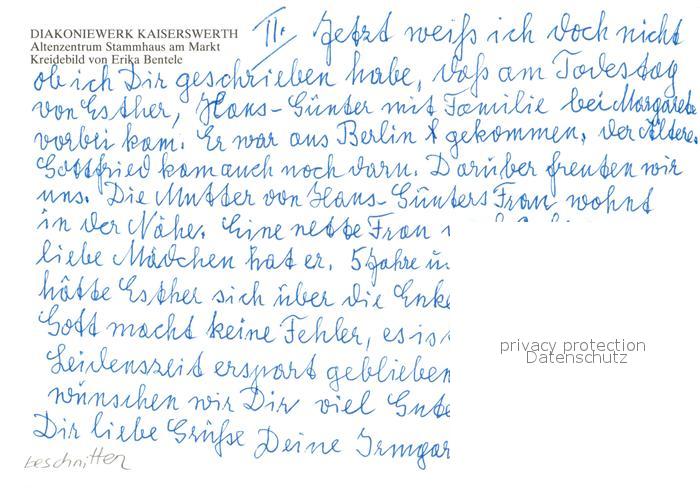 DIAKONIEWERK KAISERSWERTH
Altenzentrum Stammhaus am Markt
Kreidebild von Erika Bentele
II. Jetzt weiß ich doch nicht
ob ich Dir geschrieben habe, daß am Todestag
von Esther, Hans-Günter mit Familie bei Margarete
vorbei kam. Er war aus Berlin gekommen, der Ältere.
Gottfried kam auch noch dazu. Darüber freuten wir
uns. Die Mutter von Hans-Günters Frau wohnt
in der Nähe. Eine nette Frau
liebe Mädchen hat er. 5 Jahre u.
hätte Esther sich über die Enke
Gott macht keine Fehler, es is
Leidenszeit erspart geblieben
wünschen wir Dir viel Gute
Dir liebe Grüße Deine Irmgar
beschnitten
privacy protection
Datenschutz